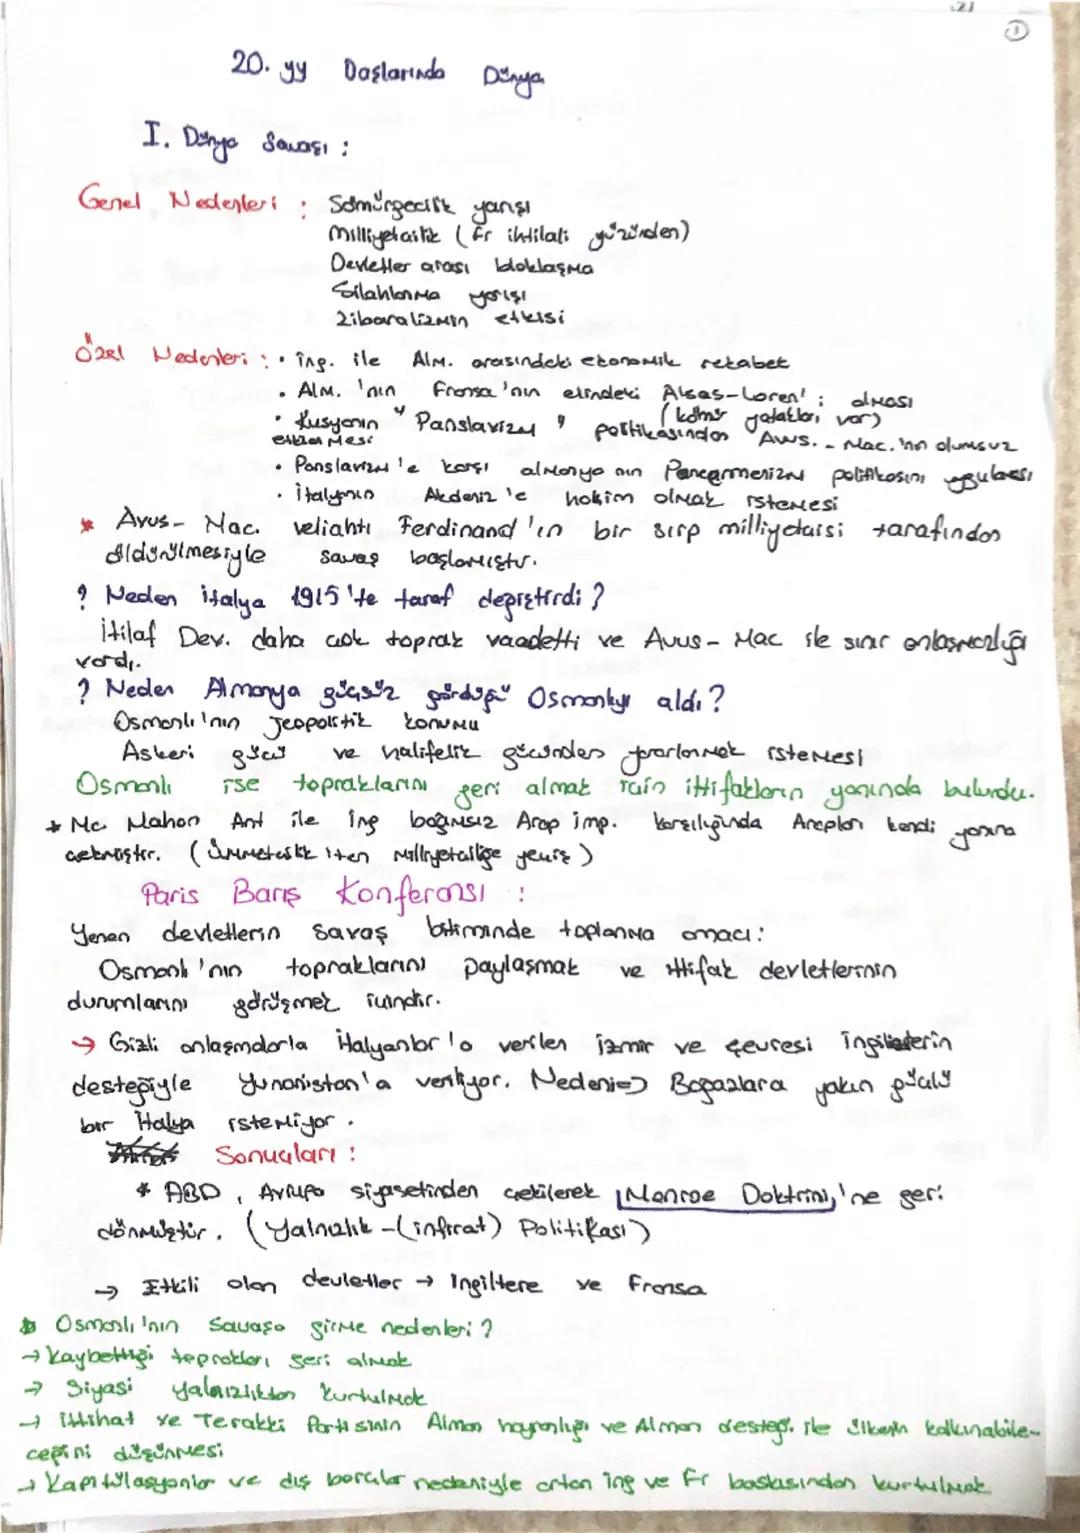 21
1
20. yy Başlarında Dünya
I. Dünya Savaşı :
Genel Nedenleri : Sömürgecilik yarışı
Milliyetçilik (Fr ihtilali yüzünden)
Devletler arası bloklaşma
Silahlanma yarışı
Liberalizmin etkisi
Özel Nedenleri : • ing. ile Alm. arasındaki ekonomik rekabet
• Alm. 'nın Fransa'nın elindeki Alsas-Loren'i alması
(kömür yatakları var)
• Rusyanın "Panslavizm" politikasından Avus. - Mac.'nın olumsuz
etkilenmesi
• Panslavizm'e karşı almanya nın Pancermenizm politikasını uygulaması
• İtalyanın Akdeniz'e hakim olmak istemesi
* Avus- Mac. veliahtı Ferdinand'ın bir sırp milliyetçisi tarafından
öldürülmesiyle savaş başlamıştır.
? Neden italya 1915'te taraf değiştirdi ?
İtilaf Dev. daha çok toprak vaadetti ve Avus- Mac ile sınır anlaşmazlığı
vardı.
? Neden Almanya güçsüz gördüğü Osmanlıyı aldı ?
Osmanlı'nın jeopolitik konumu
Askeri gücü ve halifelik gücünden yararlanmak istemesi
Osmanlı ise topraklarını geri almak için ittifakların yanında bulundu.
* Mc Mahon Ant ile ing bağımsız Arap imp. karşılığında Arapları kendi yanına
çekmiştir. (ümmetçilik iten milliyetçiliğe yeniş)
Paris Barış Konferansı :
Yenen devletlerin savaş bitiminde toplanma amacı:
Osmanlı'nın topraklarını paylaşmak ve ittifak devletlerinin
durumlarını görüşmek içindir.
→ Gizli anlaşmalarla italyanlar'a verilen izmir ve çevresi ingilizlerin
desteğiyle Yunanistan'a veriliyor. Nedeni=> Boğazlara yakın güçlü
bir italya istemiyor.
Sonuçları :
* ABD, Avrupa siyasetinden çekilerek Monroe Doktrini,'ne geri
dönmüştür. (Yalnızlık -(infirat) Politikası)
→ Etkili olan devletler → ingiltere ve Fransa
Osmanlı'nın savaşa girme nedenleri ?
→ Kaybettiği toprakları geri almak
→ Siyasi yalnızlıktan kurtulmak
→ ittihat ve Terakki Partisinin Alman hayranlığı ve Alman desteği ile ülkenin kalkınabile-
ceğini düşünmesi
→ Kapitülasyonlar ve dış borçlar nedeniyle artan ing ve Fr baskısından kurtulmak